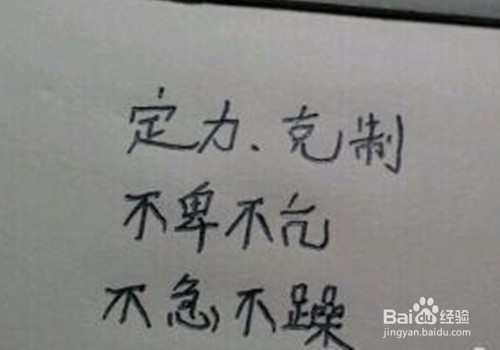 定力、克制
不卑不亢
不急不躁
Baidu经验
jingyan.baidu.com